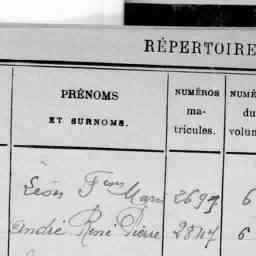 RÉPERTOIRE
PRÉNOMS
ET SURNOMS.
NUMÉROS
ma-
tricules.
NUMÉ
du
volum
Léon Fçois Marie 2699 6
André René Pierre 2847 6